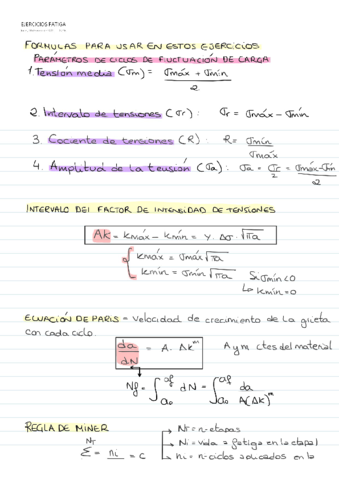 EJERCICIOS FATIGA
FORMULAS PARA USAR EN ESTOS EJERCICIOS
PARÁMETROS DE CICLOS DE FLUCTUACIÓN DE CARGA
1. Tensión media (σm) = σmáx + σmín / 2
2. Intervalo de tensiones (σr): σr = σmáx - σmín
3. Cociente de tensiones (R): R = σmín / σmáx
4. Amplitud de la tensión (σa): σa = σr / 2 = σmáx - σmín / 2
INTERVALO DEL FACTOR DE INTENSIDAD DE TENSIONES
ΔK = Kmáx - Kmín = Y · Δσ · √πa
Kmáx = σmáx √πa
Kmín = σmín √πa
Si σmín < 0
↳ Kmín = 0
ECUACIÓN DE PARIS = velocidad de crecimiento de la grieta
con cada ciclo.
da / dN = A · ΔK^m
A y m ctes del material
Nf = ∫ao^af dN = ∫ao^af da / A(ΔK)^m
REGLA DE MINER
NT = n-etapas
Ni = vida a fatiga en la etapa i
ni = n-ciclos aplicados en la
NT
Σ = ni = C